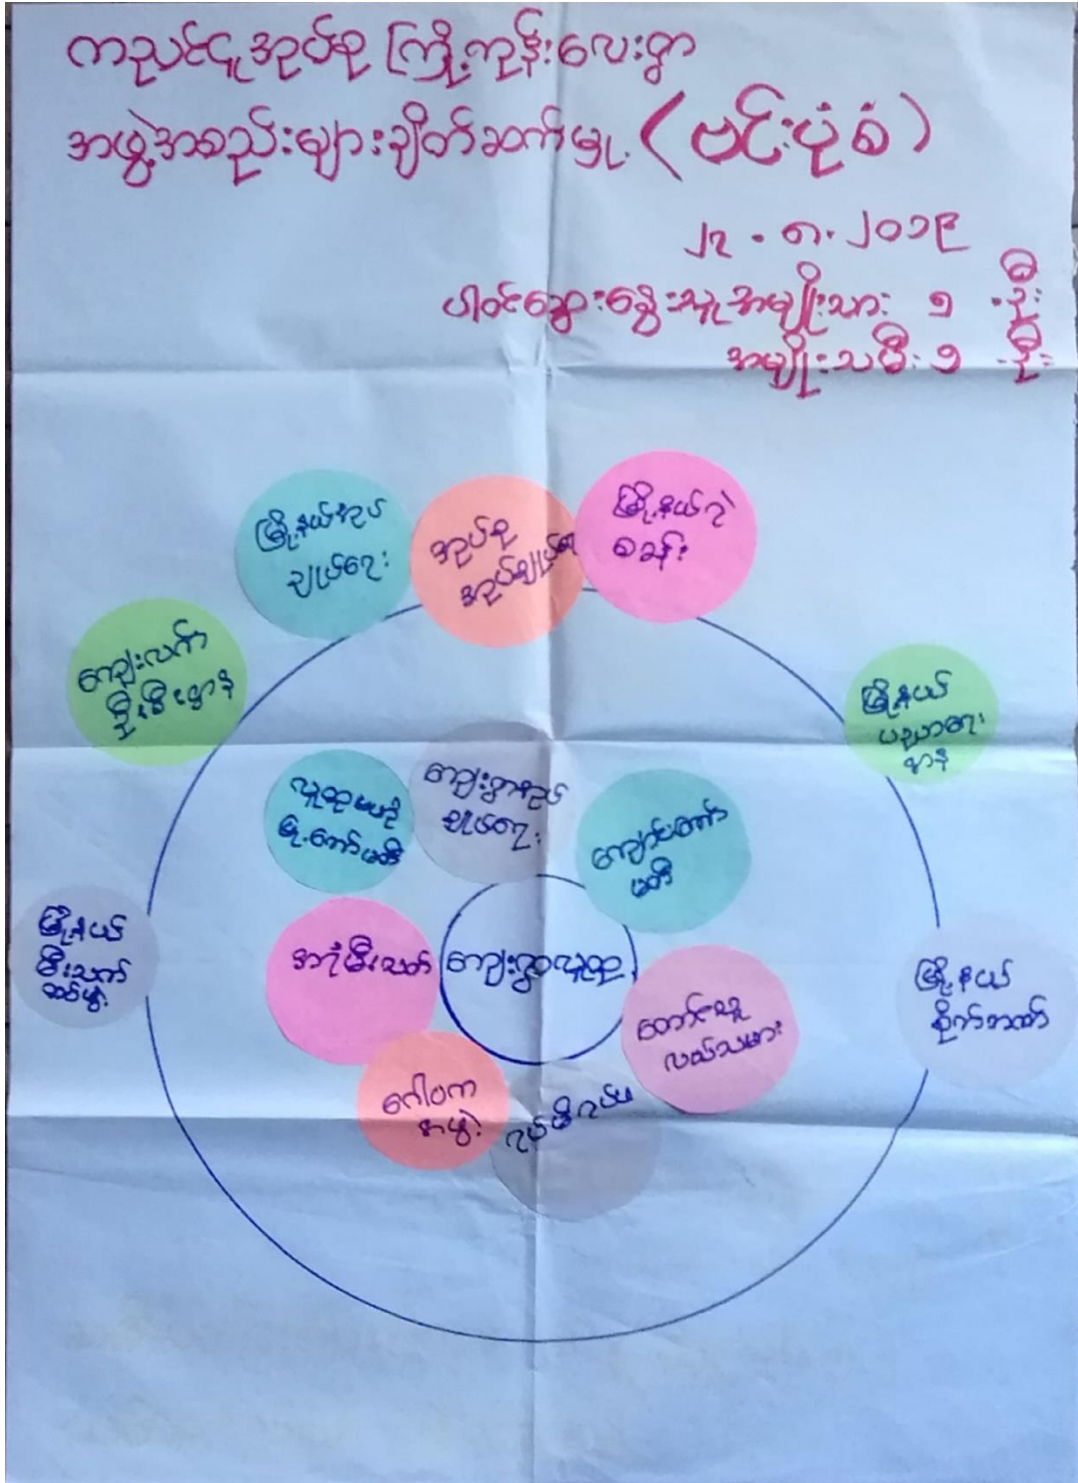 ကညင်ငူအုပ်စု ကြို့ကုန်းလေးရွာ
အဖွဲ့အစည်းများချိတ်ဆက်မှု. (ဗင်းပုံစံ)
၂၇.၈.၂၀၁၉
ပါဝင်ဆွေးနွေးသူအမျိုးသား ၅ ဦး
အမျိုးသမီး ၅ ဦး
မြို့နယ်အုပ်
ချုပ်ရေး
အုပ်စု
အုပ်ချုပ်ရေး
မြို့နယ်ရဲ
စခန်း
ကျေးလက်
ဦးစီးဌာန
မြို့နယ်
ပညာရေး
ဌာန
လူထုဗဟိုပြု
ကော်မတီ
ကျေးရွာအုပ်
ချုပ်ရေး
ကျောင်းကော်
မတီ
မြို့နယ်
မီးသတ်
တပ်ဖွဲ့
အရံမီးသတ်
ကျေးရွာလူထု
တောင်သူ
လယ်သမား
မြို့နယ်
စိုက်ဘဏ်
ဂေါပက
အဖွဲ့
ရပ်မိရပ်ဖ